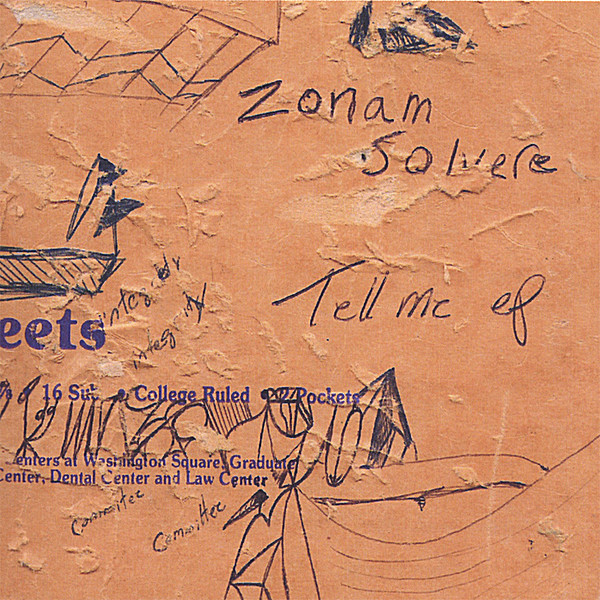 Zonam
Solvere
Tell me ep
integrity
eets
integrity
16 • College Ruled • 2 Pockets
enters at Washington Square, Graduate
Center, Dental Center and Law Center
Committee
Committee